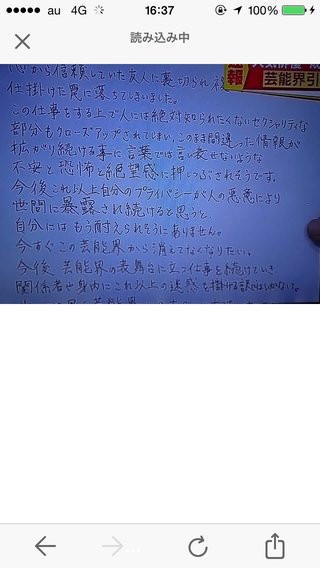 au 4G 16:37 100%
読み込み中
心から信頼していた友人に裏切られ
仕掛けた罠に落ちてしまいました。
この仕事をする上で人には絶対知られたくないセクシャリティな
部分もクローズアップされてしまい、このまま間違った情報が
拡がり続ける事に言葉では言い表せないような
不安と恐怖と絶望感に押しつぶされそうです。
今後これ以上自分のプライバシーが人の悪意により
世間に暴露され続けると思うと、
自分にはもう耐えられそうにありません。
今すぐこの芸能界から消えてなくなりたい。
今後、芸能界の表舞台に立つ仕事を続けていき
関係者や身内にこれ以上の迷惑を掛ける訳にはいかない。
速報
芸能界引